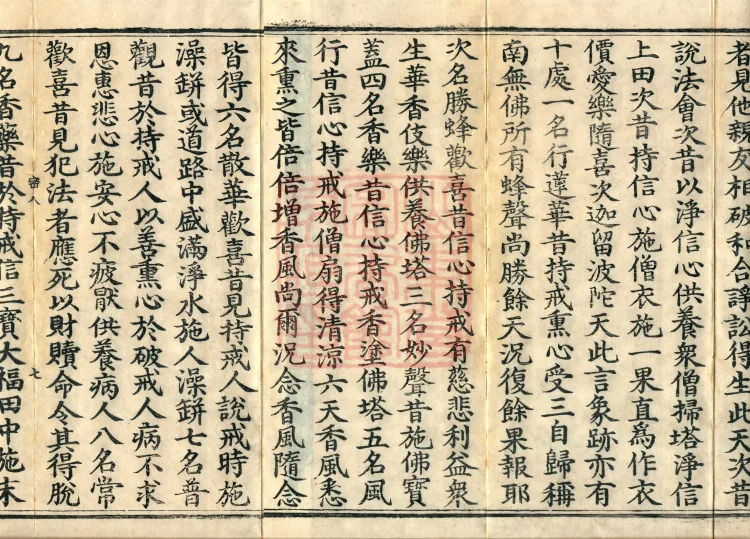 者見他親友相破和合諍訟得生此天次昔
說法會次昔以淨信心供養衆僧掃塔淨信
上田次昔持信心施僧衣施一果直爲作衣
價愛樂隨喜次迦留波陀天此言象跡亦有
十處一名行蓮華昔持戒熏心受三自歸稱
南無佛所有蜂聲尚勝餘天況復餘果報耶
次名勝蜂歡喜昔信心持戒有慈悲利益衆
生華香伎樂供養佛塔三名妙聲昔施佛寶
蓋四名香樂昔信心持戒香塗佛塔五名風
行昔信心持戒施僧扇得清涼六天香風悉
來熏之皆倍倍增香風尚爾況念香風隨念
皆得六名散華歡喜昔見持戒人說戒時施
澡缾或道路中盛滿淨水施人澡缾七名普
觀昔於持戒人以善熏心於破戒人病不求
恩惠悲心施安心不疲厭供養病人八名常
歡喜昔見犯法者應死以財贖命令其得脫
九名香藥昔於持戒信三寶大福田中施末
七